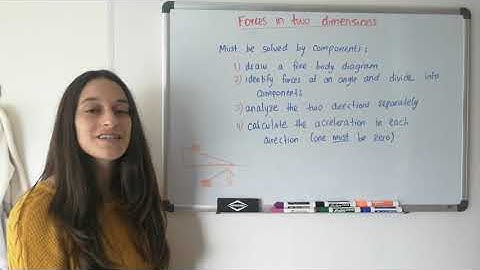 Forces in two dimensions
Must be solved by components:
1) draw a free body diagram
2) identify forces at an angle and divide into
components
3) analyze the two directions separately
4) calculate the acceleration in each
direction (one must be zero)